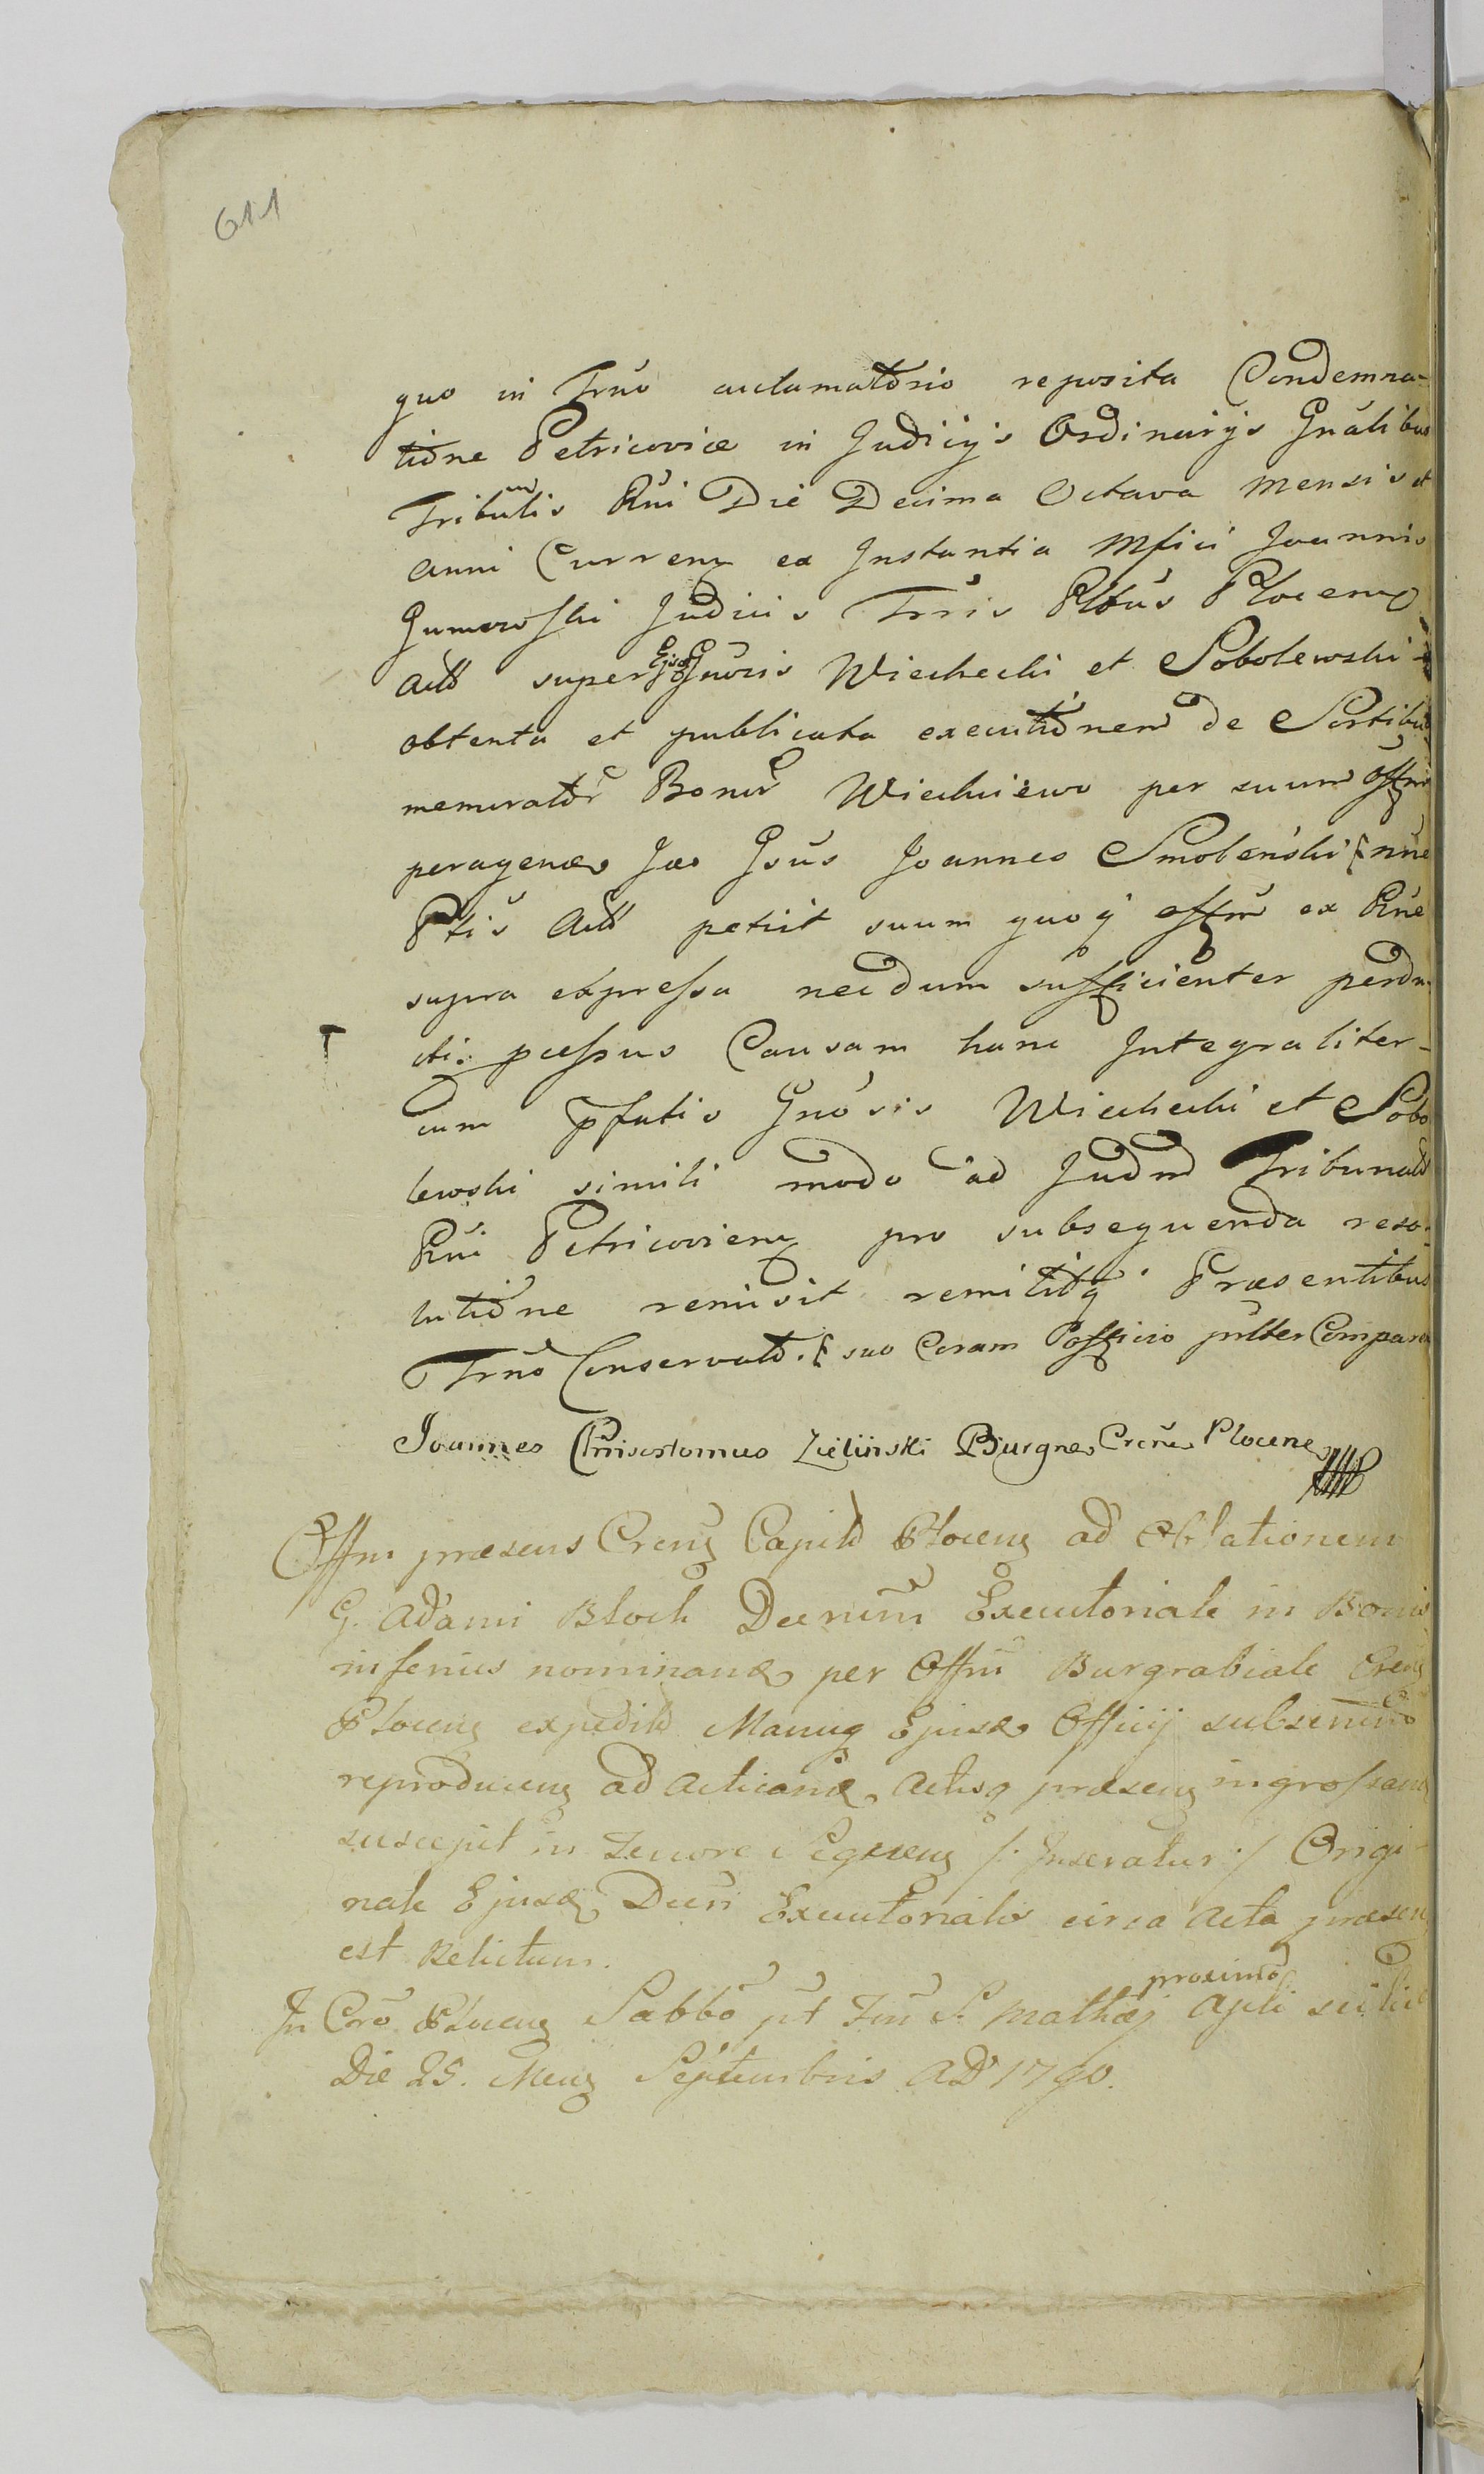 611
quo in Trno acclamatorio reposita Condemna-
tione Petricoviæ in Judicijs Ordinarijs Gnalibus
Tribunlis Rni Die Decima Octava Mensis et
anni Curren ex Instantia Mfici Joannis
Judicis Trris Plocen
Act super Gnosis Wiechecki et Sobolewski
obtenta et publicata executionem de Sortibus
memorator Bonor Wiechniewo per suum Offm
peragen Joannes Smolenski
Act petiit suum quoq offm ex Rne
supra expressa necdum sufficienter
Causam hanc Integraliter
cum pfatis Gnosis Wiechecki et Sobo
lewski simili modo ad Judm Tribunal
Rni Petricovien pro subsequenda reso-
lutione remisit remititq Præsentibus
Trno Conservato suo Coram Officio pntter Comparen
Joannes Chrisostomus Zieliński Burgrs Crens Plocens
Offm præsens Cren Capitl Plocen ad Oblationem
G. Adami Bloch Decrtum Executoriale in Bonis
inferius nominand per Offm Burgrabiale Cren
Plocen expedit Manuq Ejusd Officij
reproducen ad acticand, Actisq præsen ingrossand
suscepit in Tenore Seqven /: Inseratur :/ Origi-
nale Ejusd Decri Executorialis circa Acta præsen
est Relictum.
In Cro Plocen Sabbo pt Fm S. Mathæj Apli proximo
Die 25. Men Septembris AD 1790.